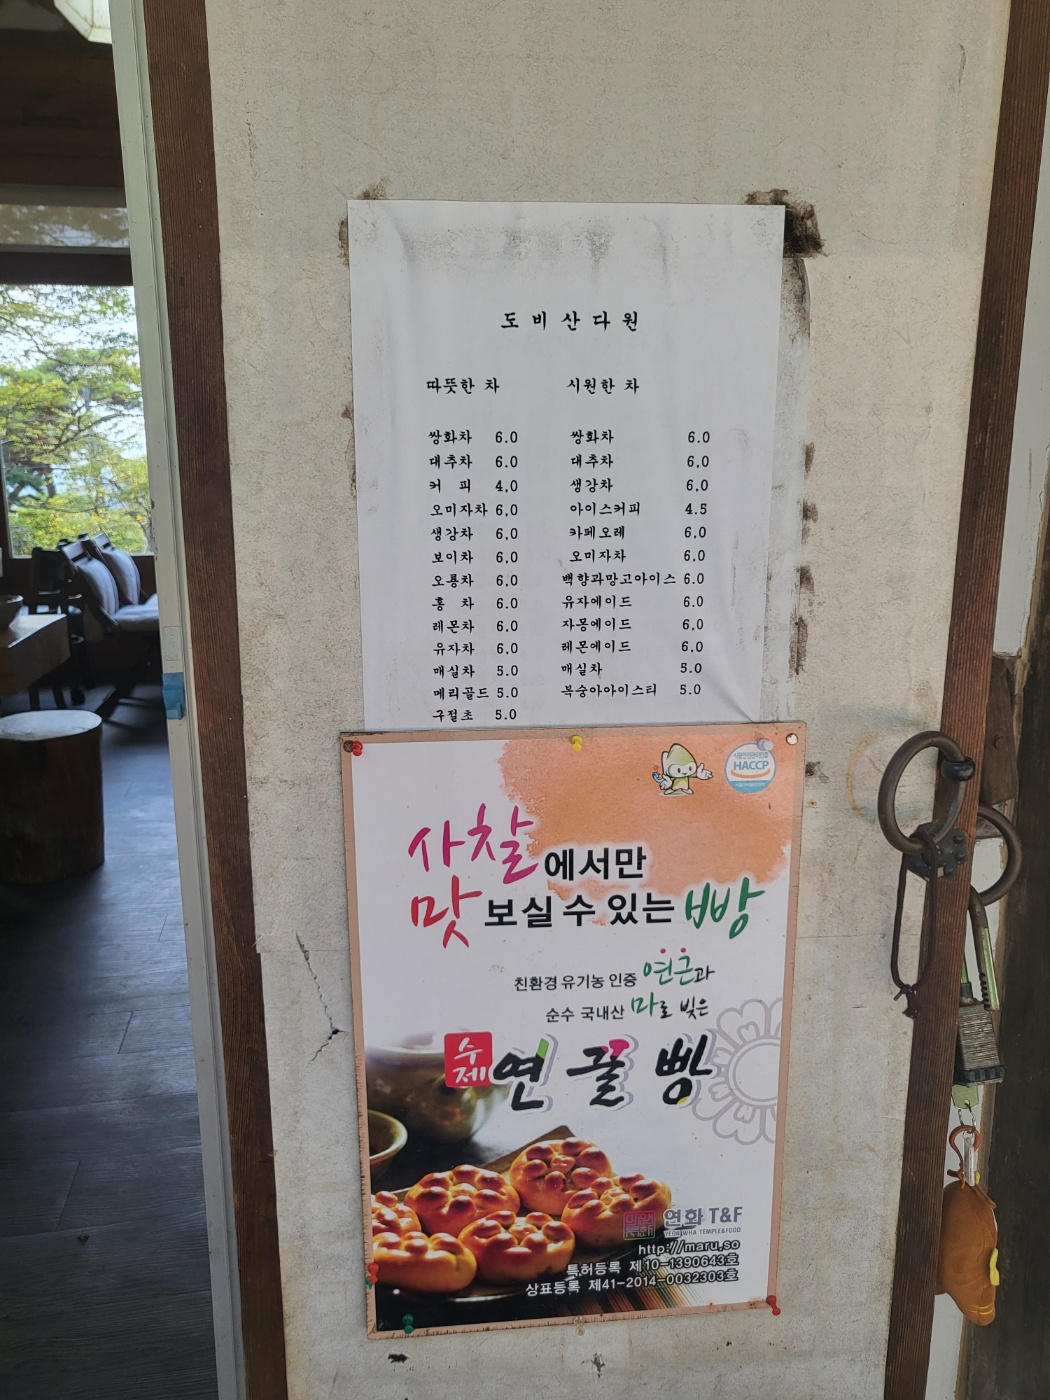 도비산다원
따뜻한 차 시원한 차
쌍화차 6.0 쌍화차 6.0
대추차 6.0 대추차 6.0
커 피 4.0 생강차 6.0
오미자차 6.0 아이스커피 4.5
생강차 6.0 카페오레 6.0
보이차 6.0 오미자차 6.0
오룡차 6.0 백향과망고아이스 6.0
홍 차 6.0 유자에이드 6.0
레몬차 6.0 자몽에이드 6.0
유자차 6.0 레몬에이드 6.0
매실차 5.0 매실차 5.0
메리골드 5.0 복숭아아이스티 5.0
구절초 5.0
HACCP
사찰에서만
맛보실 수 있는 빵
친환경 유기농 인증 연근과
순수 국내산 마로 빚은
수제 연꿀빵
연화 T&F
YEONHWA TEMPLE&FOOD
http://maru.so
특허등록 제10-1390643호
상표등록 제41-2014-0032303호